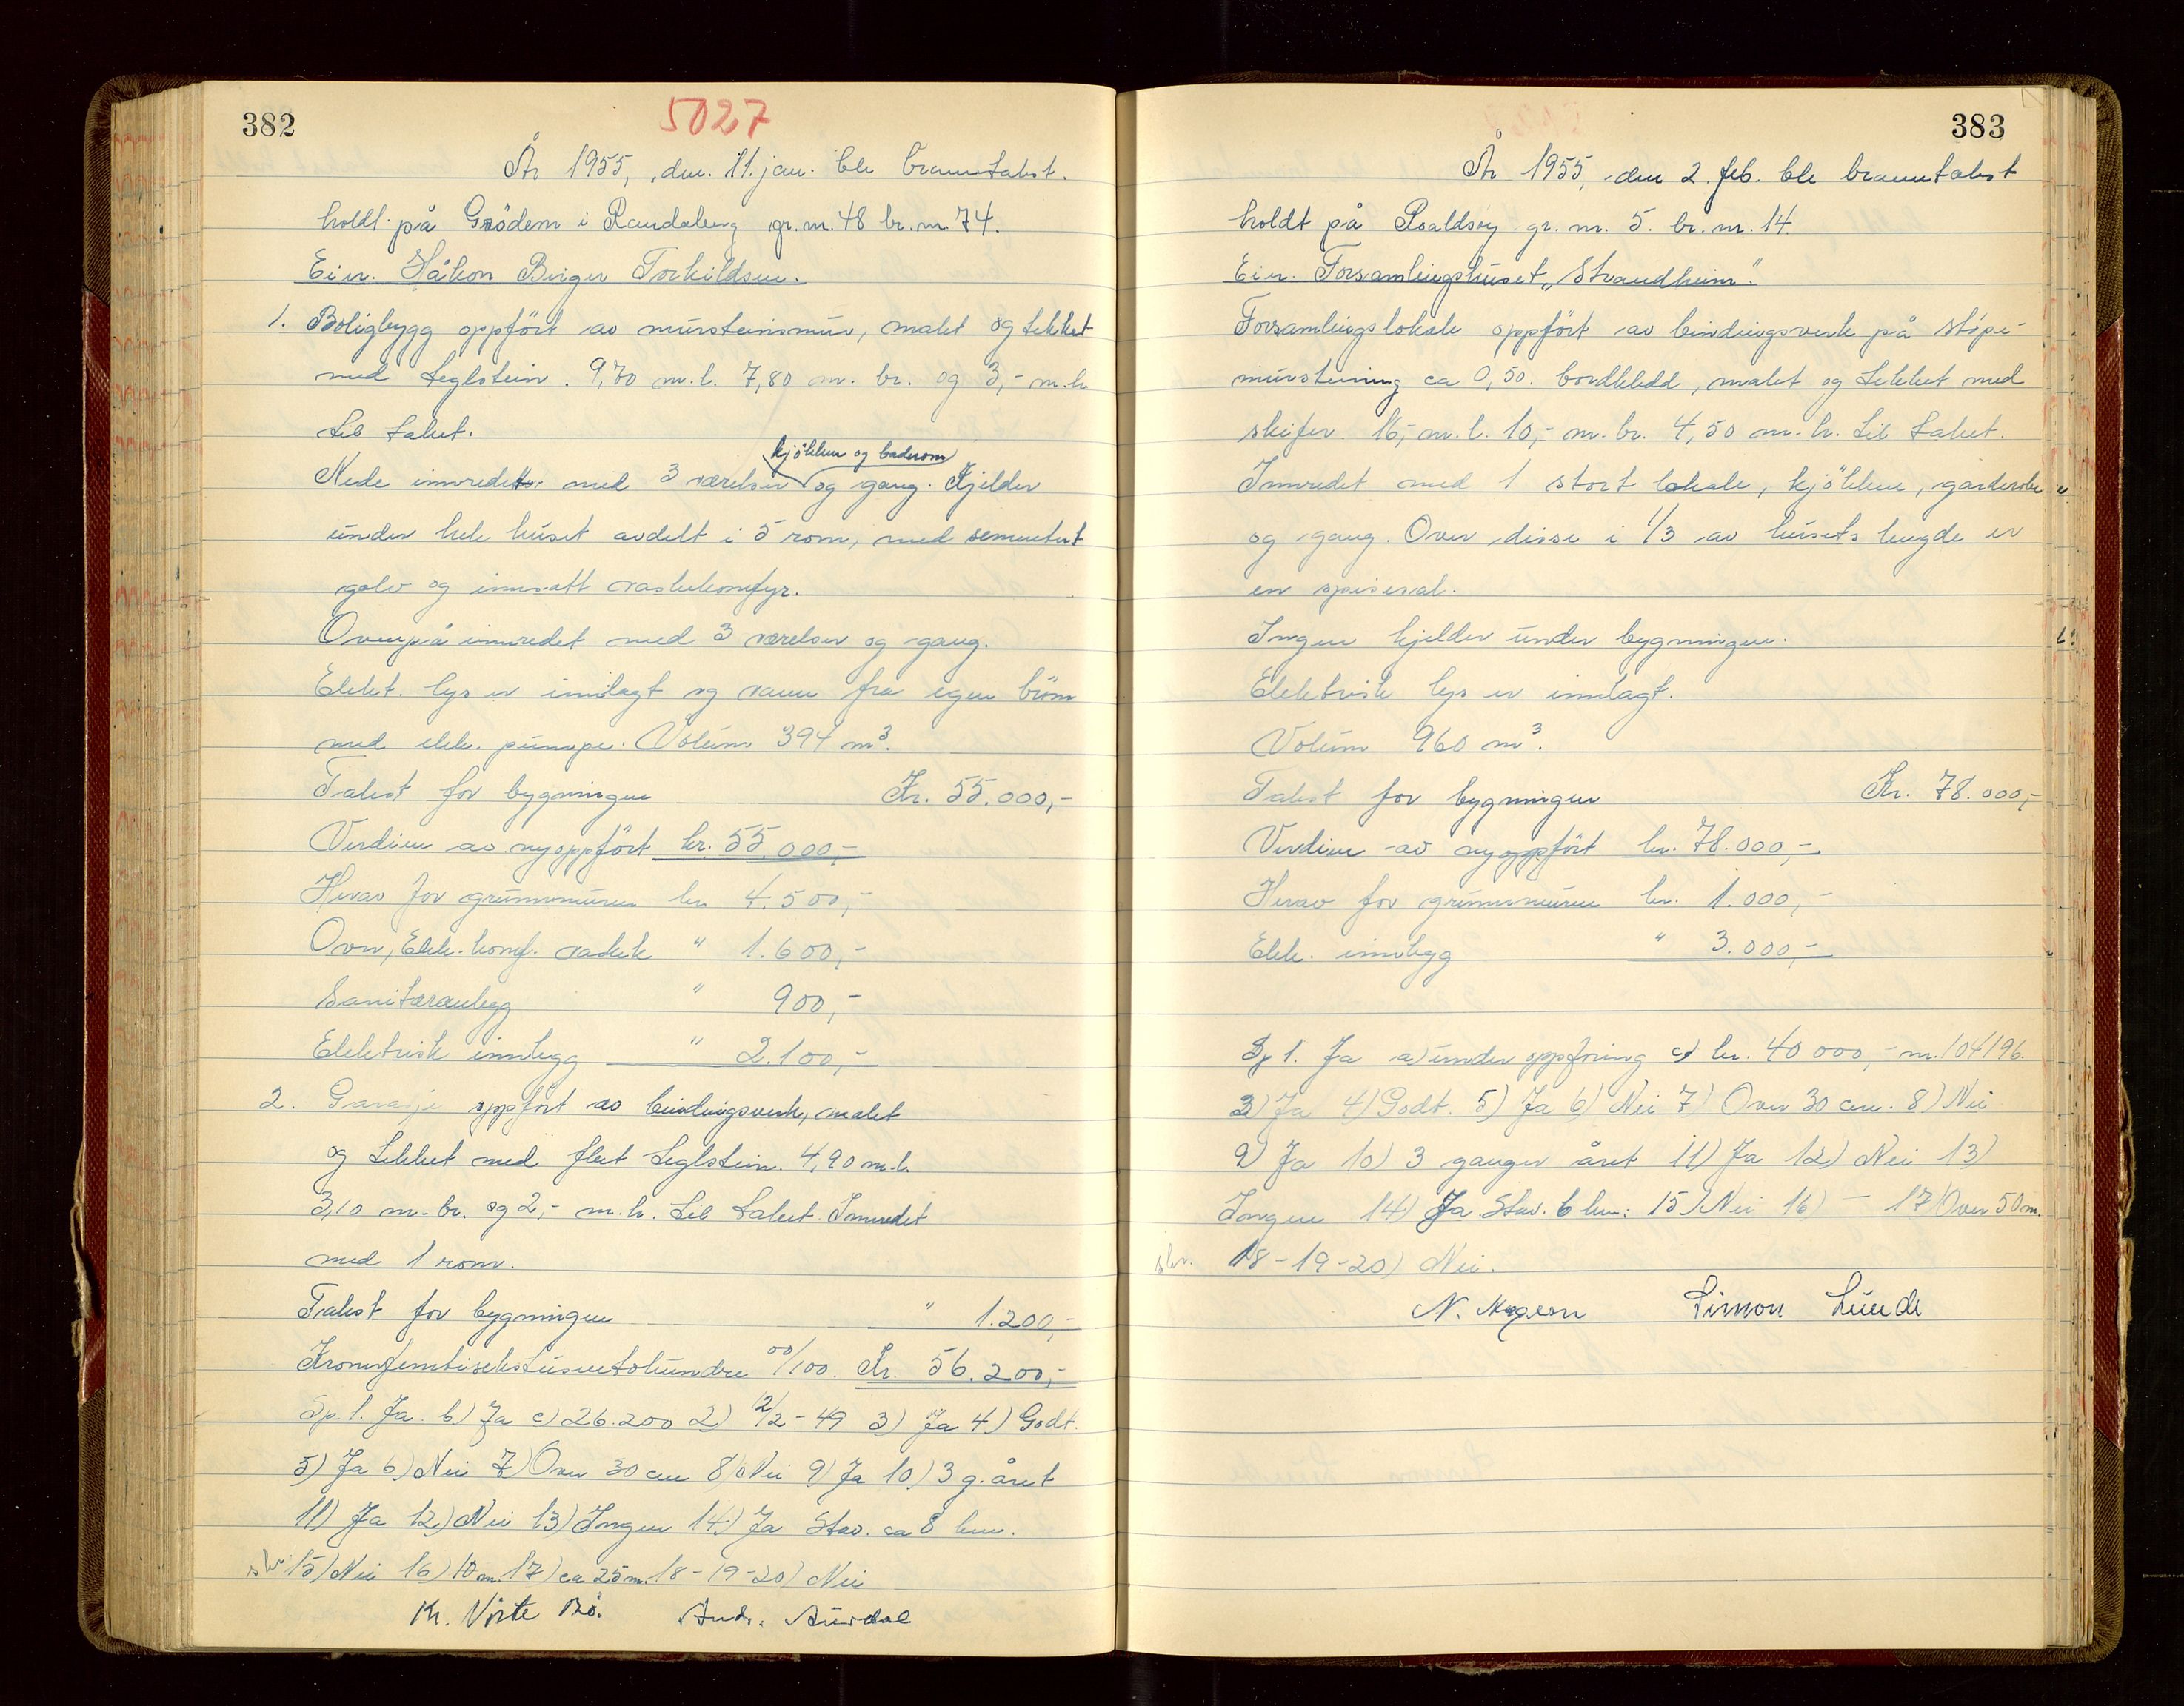 382
5027
År 1955, den 11. jan. ble branntakst.
holdt på Grödem i Randaberg gr. nr. 48 br. nr. 74.
Eier. Håkon Birger Torkildsen.
1. Boligbygg oppfört av mursteinsmur, malt og tekket
med teglstein. 9,70 m. l. 7,80 m. br. og 3,- m. h
til taket.
kjökken og baderom
Nede innredet med 3 værelser og gang. Kjelder
under hele huset avdelt i 5 rom, med sementert
golv og innsatt vaskekomfyr.
Ovenpå innredet med 3 værelser og gang.
Elekt. lys er innlagt og vann fra egen brön
med elek. pumpe. Volum 394 m³.
Takst for bygningen Kr. 55.000,-
Verdien av nyoppfört kr. 55.000,-
Herav for grunnmuren kr 4.500,-
Ovn, Elek. komf. vaskek " 1.600,-
Sanitæranlegg " 900,-
Elektrisk innlegg " 2.100,-
2. Garasje oppfört av bindingsverk, malet
og tekket med flat teglstein. 4,90 m. l.
3,10 m. br. og 2,- m. h. til taket. Innredet
med 1 rom.
Takst for bygningen " 1.200,-
Kronerfemtisekstusentohundre 00/100. Kr. 56.200,-
Sp. 1. Ja. b) Ja c) 26.200 2) 12/2-49 3) Ja 4) Godt.
5) Ja 6) Nei 7) Over 30 cm 8) Nei 9) Ja 10) 3 g. året
11) Ja 12) Nei 13) Ingen 14) Ja Stav. ca 8 km.
skr. 15) Nei 16) 10 m. 17) ca 25 m. 18-19-20) Nei
Kr. Viste Bö. Andr. Aurdal
383
År 1955, den 2. feb. ble branntakst
holdt på Roaldsøy gr. nr. 5. br. nr. 14.
Eier. Forsamlingshuset „Strandheim".
Forsamlingslokale oppfört av bindingsverk på stöpe-
mursteining ca 0,50. bordkledd, malet og tekket med
skifer. 16,- m. l. 10,- m. br. 4,50 m. h. til taket.
Innredet med 1 stort lokale, kjökken, garderobe
og gang. Over disse i 1/3 av husets lengde er
en spisesal.
Ingen kjelder under bygningen.
Elektrisk lys er innlagt.
Volum 960 m³.
Takst for bygningen Kr. 78.000,-
Verdien av nyoppfört kr. 78.000,-
Herav for grunnmuren kr. 1.000,-
Elek. innlegg " 3.000,-
Sp 1. Ja a) under oppföring c) kr. 40 000,- nr. 104196.
3) Ja 4) Godt. 5) Ja 6) Nei 7) Over 30 cm. 8) Nei
9) Ja 10) 3 ganger året 11) Ja 12) Nei 13)
Ingen 14) Ja Stav. 6 km: 15) Nei 16) - 17) Over 50 m.
skr. 18-19-20) Nei.
Simon Lunde